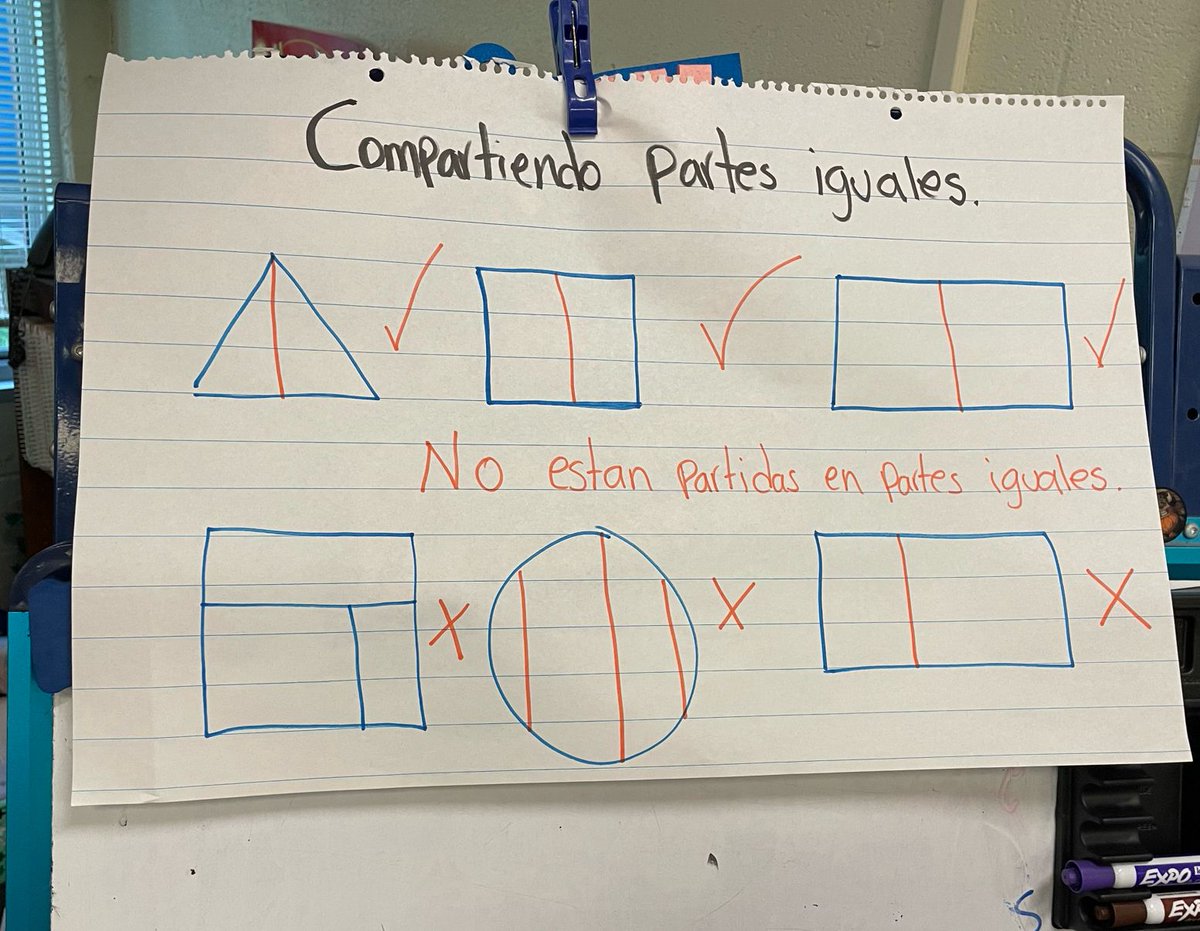 Compartiendo partes iguales.
No estan partidas en partes iguales.
EXPO
EXP
S